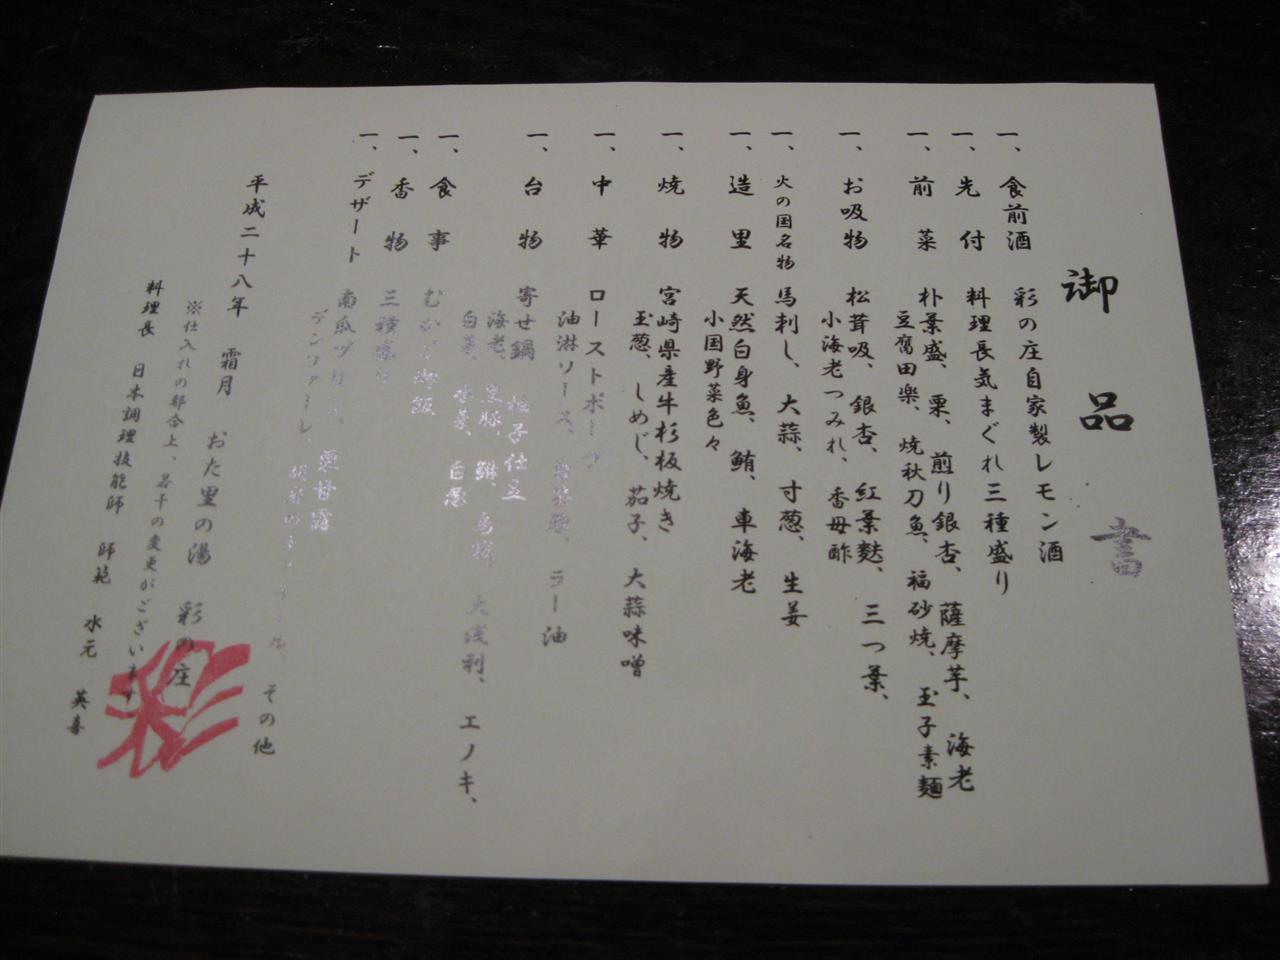 御品書
一、食前酒　彩の庄自家製レモン酒
一、先付　料理長気まぐれ三種盛り
一、前菜　朴葉盛、栗、煎り銀杏、薩摩芋、海老
豆腐田楽、焼秋刀魚、福砂焼、玉子素麺
一、お吸物　松茸吸、銀杏、紅葉麩、三つ葉、
小海老つみれ、香母酢
一、火の国名物　馬刺し、大蒜、寸葱、生姜
一、造里　天然白身魚、鮪、車海老
小国野菜色々
一、焼物　宮崎県産牛杉板焼き
玉葱、しめじ、茄子、大蒜味噌
一、中華　ローストポーク
油淋ソース、ラー油
一、台物　寄せ鍋　柚子仕立
海老、黒豚、大浅利、エノキ、
白菜、水菜、白葱
一、食事　むかご御飯
一、香物　三種盛り
一、デザート　南瓜プリン、栗甘露
デンファーレ、その他
平成二十八年　霜月　おた里の湯　彩の庄
※仕入れの都合上、若干の変更がございます
料理長　日本調理技能師　師範　水元　英喜